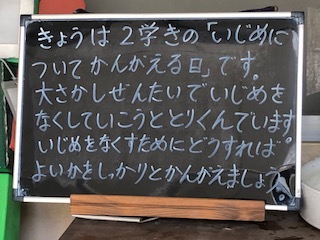 きょうは2学きの「いじめに
ついてかんがえる日」です。
大さかしぜんたいでいじめを
なくしていこうととりくんでいます。
いじめをなくすためにどうすれば
よいかをしっかりとかんがえましょう